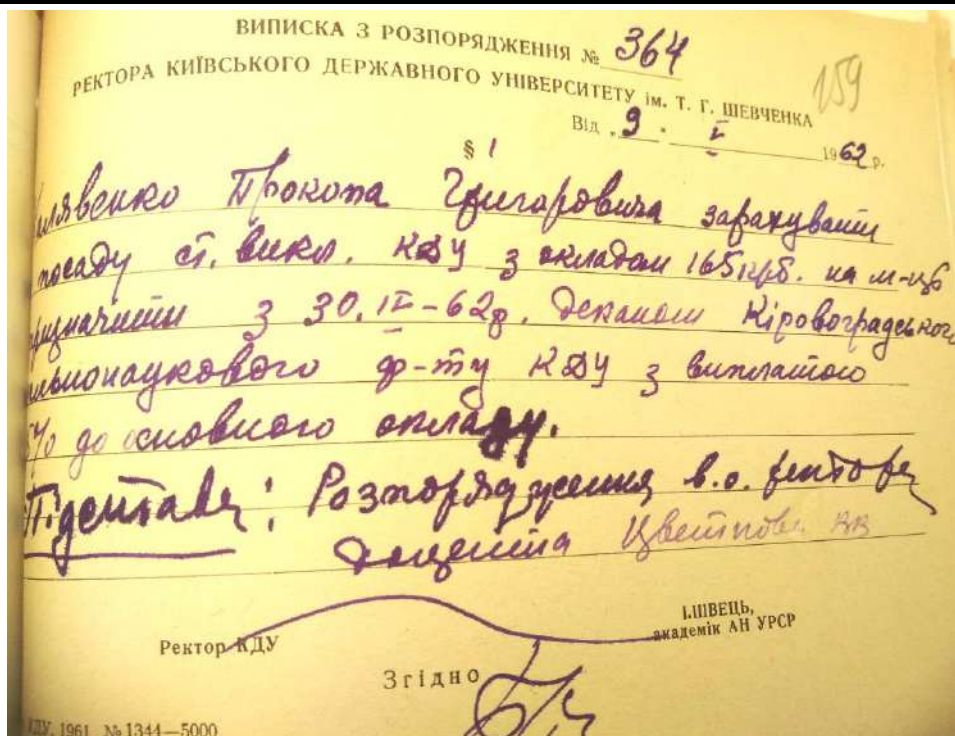 ВИПИСКА З РОЗПОРЯДЖЕННЯ № 364
159
РЕКТОРА КИЇВСЬКОГО ДЕРЖАВНОГО УНІВЕРСИТЕТУ ім. Т. Г. ШЕВЧЕНКА
Від „9" V 1962 р.
§ 1
илявенко Прокопа Григоровича зарахувати
посаду ст. викл. КДУ з окладом 165 крб. на м-ць
призначити з 30.IV-62р. деканом Кіровоградського
ьнонаукового ф-ту КДУ з виплатою
5% до основного окладу.
Підстава: Розпорядження в.о. ректора
доцента Цветкова ВВ
Ректор КДУ
І.ШВЕЦЬ,
академік АН УРСР
Згідно
КДУ, 1961, № 1344—5000